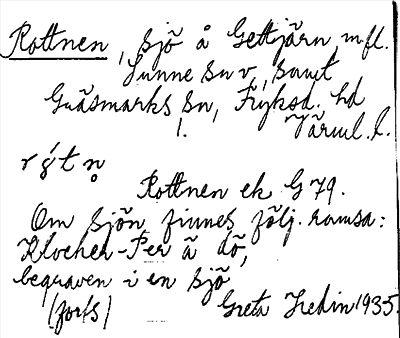 Rottnen, sjö å Gettjärn m fl.
Sunne sn v, samt
Gräsmarks sn, Fryksd. hd
Värml. l.
Rottnen ek G 79.
Om sjön finnes följ. ramsa:
Klocker-Per ä dö,
begraven i en sjö
(forts) Greta Hedin 1935.